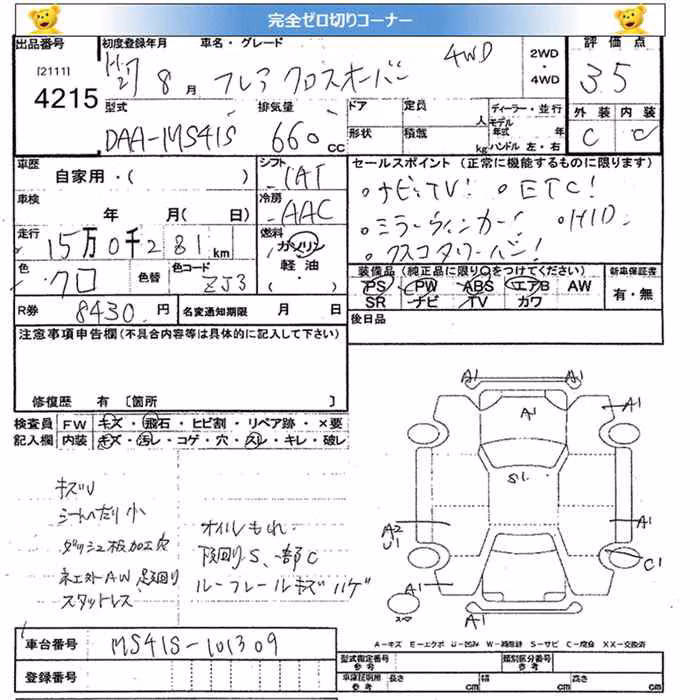 完全ゼロ切りコーナー
出品番号 初度登録年月 車名・グレード 2WD・4WD 評価点
[2111] 4215 H27 8月 フレアクロスオーバー 4WD 3.5
型式 排気量 ドア 定員 人 ディーラー・並行 外装 内装
DAA-MS41S 660cc 形状 積載 kg モデル年式 年 ハンドル 左・右 C C
車歴 自家用・( ) シフト IAT セールスポイント (正常に機能するものに限ります)
車検 年 月(日) 冷房 AAC ・ナビTV! ・ETC!
走行 15万0千281km 燃料 ガソリン 軽油 ( ・ ) ・ミラーウィンカー! ・HID
・クスコタワーバー!
色 クロ 色替 色コード ZJ3 装備品(純正品に限り○をつけてください) 新車保証書
PS PW ABS エアB AW 有・無
R券 8430円 名変通知期限 月 日 SR ナビ TV カワ
注意事項申告欄(不具合内容等は具体的に記入して下さい) 後日品
修復歴 有 [箇所 ]
検査員 FW キズ・飛石・ヒビ割・リペア跡・×要
記入欄 内装 キズ・汚レ・コゲ・穴・スレ・キレ・破レ
A1 A1
A1 A1
S1
キズU
シートへたり小
ダッシュ板加工穴
社外AW 足回り
スタットレス
オイルもれ
下回りS、一部C
ルーフレールキズハゲ
A2 U1 A1
C1
A1
スペア A1
A-キズ E-エクボ U-凹凸 W-補修跡 S-サビ C-腐食 XX-交換済
車台番号 MS41S-101309
登録番号
型式指定番号参考 類別区分番号参考
車庫証明用参考 長さ cm 幅 cm 高さ cm